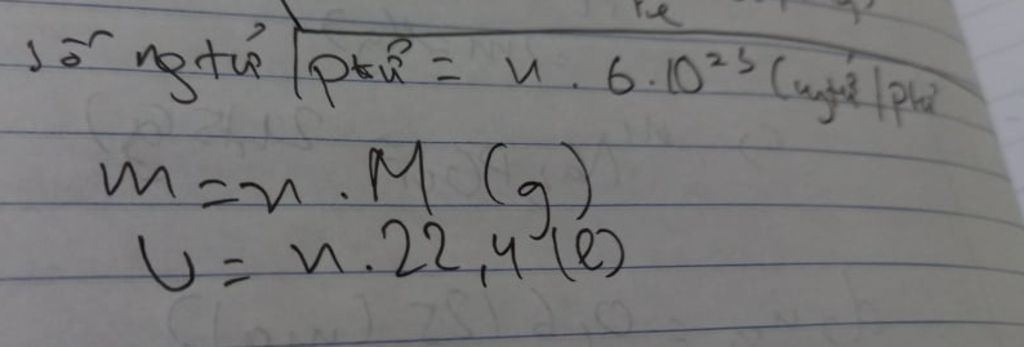 số ngtử/ptử = n . 6.10²³ (ngtử/ptử
m = n . M (g)
V = n . 22,4 (l)